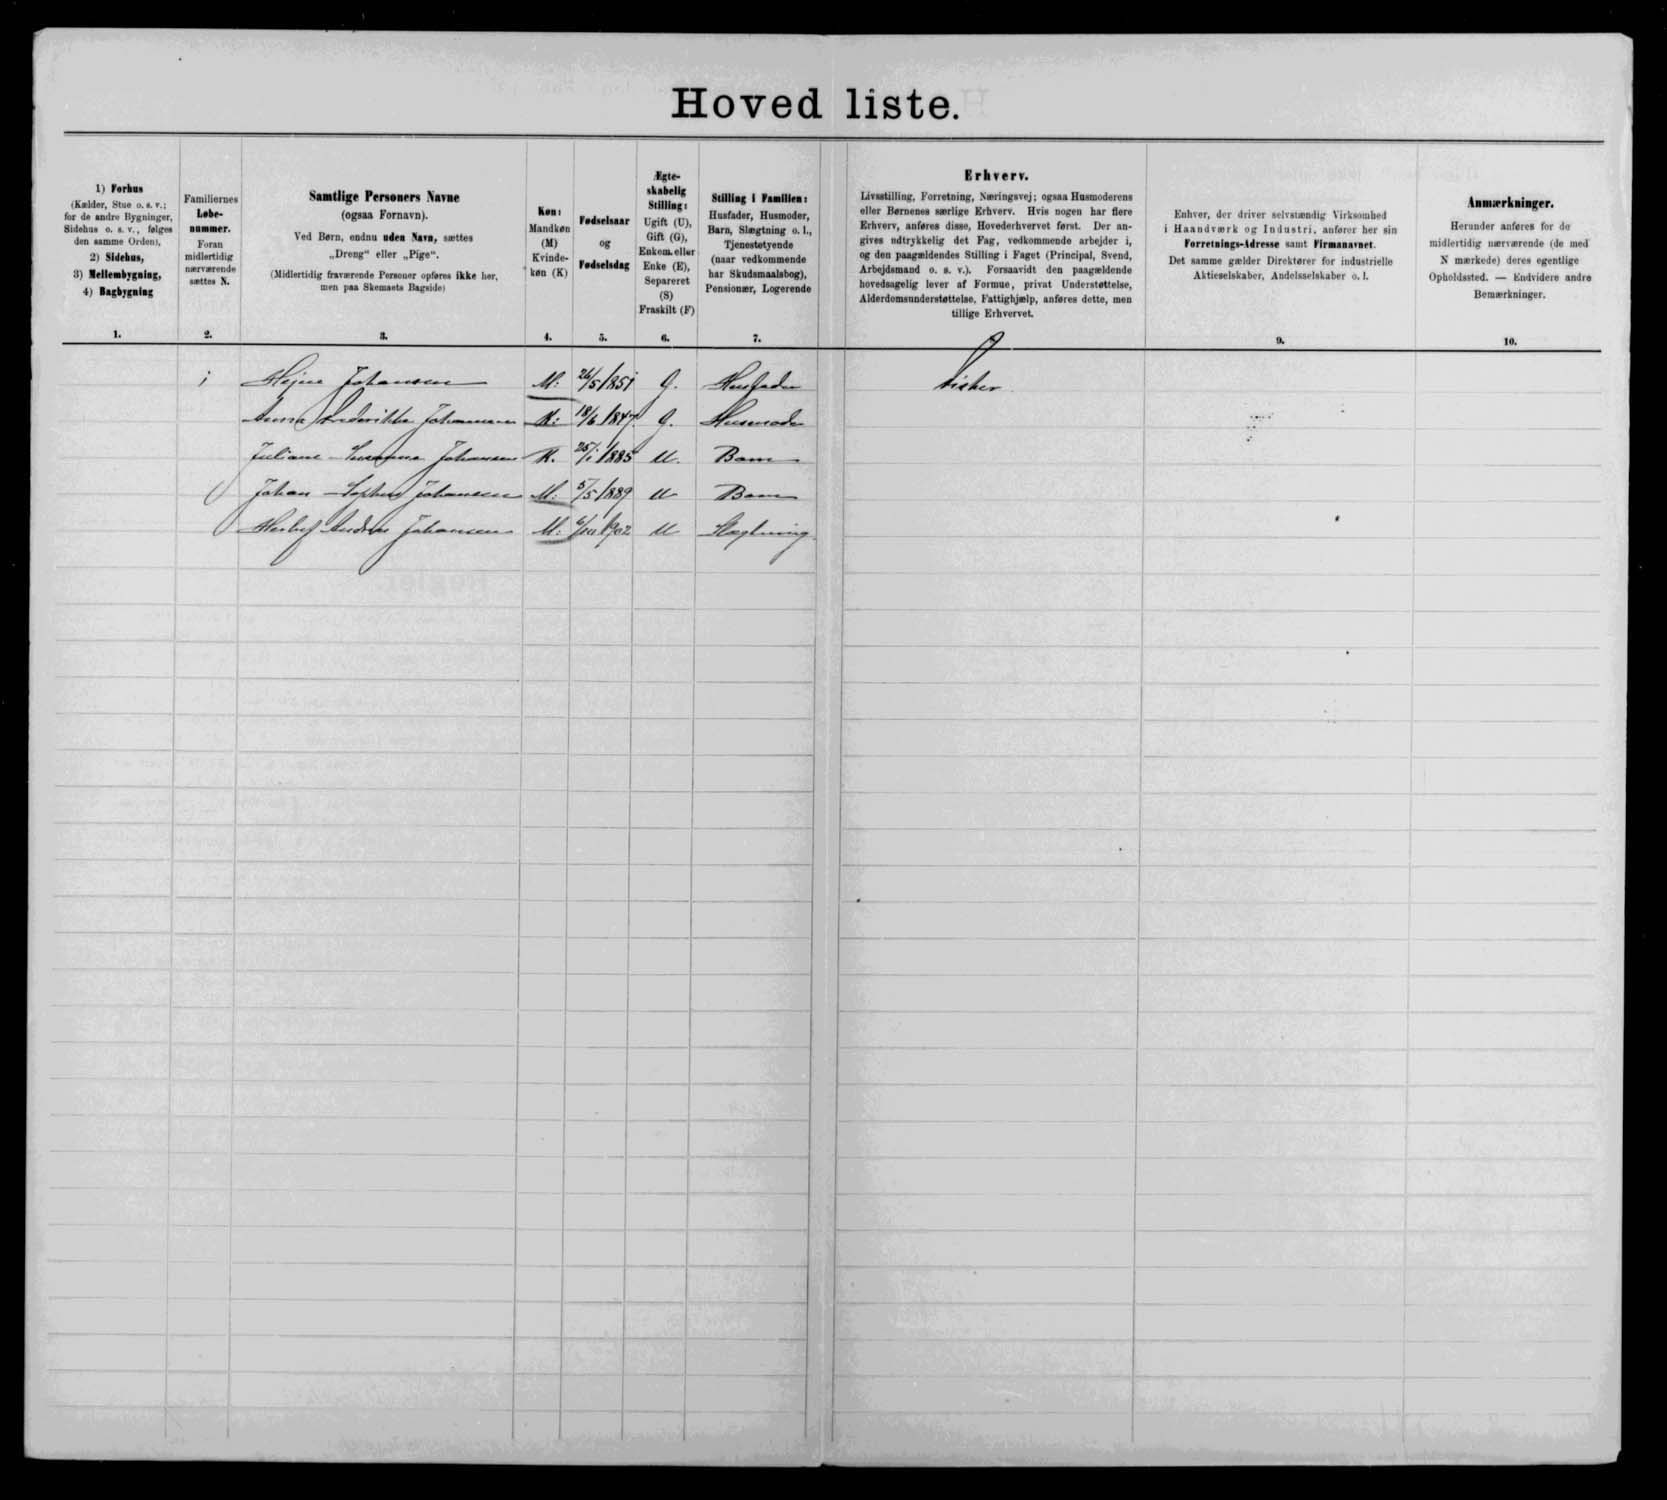 Hovedliste.
1) Forhus
(Kælder, Stue o. s. v.;
for de andre Bygninger,
Sidehus o. s. v., følges
den samme Orden),
2) Sidehus,
3) Mellembygning,
4) Bagbygning
1.
Familiernes
Løbe-
nummer.
Foran
midlertidig
nærværende
sættes N.
2.
Samtlige Personers Navne
(ogsaa Fornavn).
Ved Børn, endnu uden Navn, sættes
„Dreng“ eller „Pige“.
(Midlertidig fraværende Personer opføres ikke her,
men paa Skemaets Bagside)
3.
Køn:
Mandkøn
(M)
Kvinde-
køn (K)
4.
Fødselsaar
og
Fødselsdag
5.
Ægte-
skabelig
Stilling:
Ugift (U),
Gift (G),
Enkem. eller
Enke (E),
Separeret
(S)
Fraskilt (F)
6.
Stilling i Familien:
Husfader, Husmoder,
Barn, Slægtning o. l.,
Tjenestetyende
(naar vedkommende
har Skudsmaalsbog),
Pensionær, Logerende
7.
Erhverv.
Livsstilling, Forretning, Næringsvej; ogsaa Husmoderens
eller Børnenes særlige Erhverv. Hvis nogen har flere
Erhverv, anføres disse, Hovederhvervet først. Der an-
gives udtrykkelig det Fag, vedkommende arbejder i,
og den paagældendes Stilling i Faget (Principal, Svend,
Arbejdsmand o. s. v.). Forsaavidt den paagældende
hovedsagelig lever af Formue, privat Understøttelse,
Alderdomsunderstøttelse, Fattighjælp, anføres dette, men
tillige Erhvervet.
Enhver, der driver selvstændig Virksomhed
i Haandværk og Industri, anfører her sin
Forretnings-Adresse samt Firmanavnet.
Det samme gælder Direktører for industrielle
Aktieselskaber, Andelsselskaber o. l.
9.
Anmærkninger.
Herunder anføres for de
midlertidig nærværende (de med
N mærkede) deres egentlige
Opholdssted. — Endvidere andre
Bemærkninger.
10.
1 Johansen M: 26/5 1851 G. Husfader Fisker
Anna Frederikke Johansen K: 18/6 1847 G. Husmoder
Juliane Susanne Johansen K. 25/1 1885 U. Barn
Johan Sophus Johansen M: 5/5 1889 U Barn
Andreas Johansen M: 1902 U Slægtning